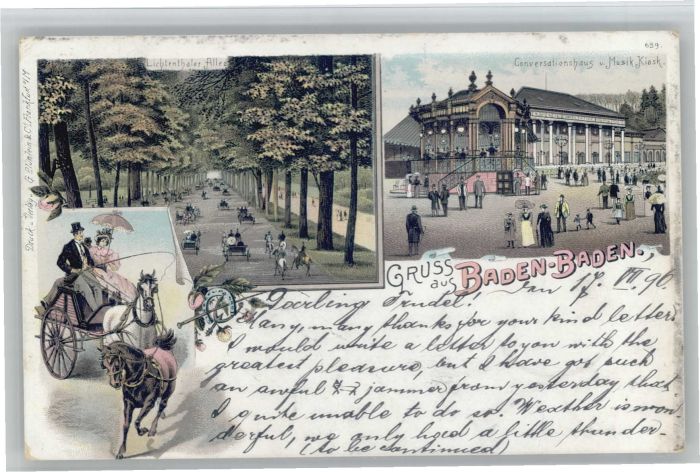 659
Lichtenthaler Allee
Conversationshaus u. Musik Kiosk.
GRUSS aus BADEN-BADEN.,
den 17. VII. 96
Darling Trudel!
Many, many thanks for your kind letter.
I would write a letter to you with the
greatest pleasure, but I have got such
an awful jammer from yesterday that
I quite unable to do so. Weather is won-
derful, we only had a little thunder-
(to be continued)
Druck u. Verlag v. G. Blümlein & Co. Frankfurt a/M